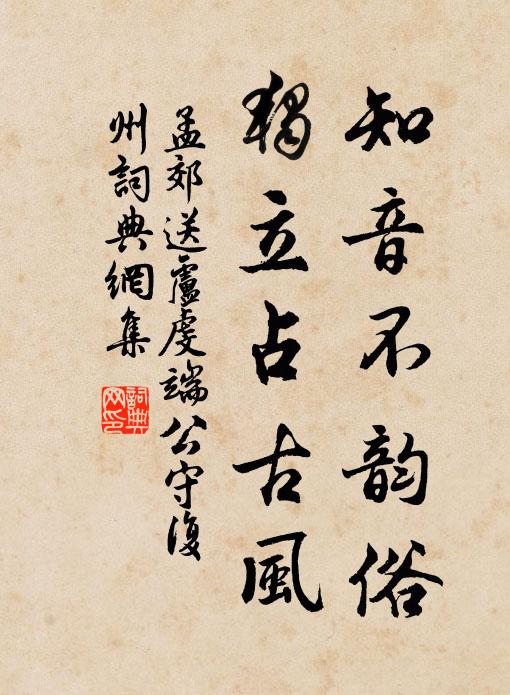 知音不韵俗
獨立占古風
孟郊送盧虔端公守復
州詞典網集
詞典
网印